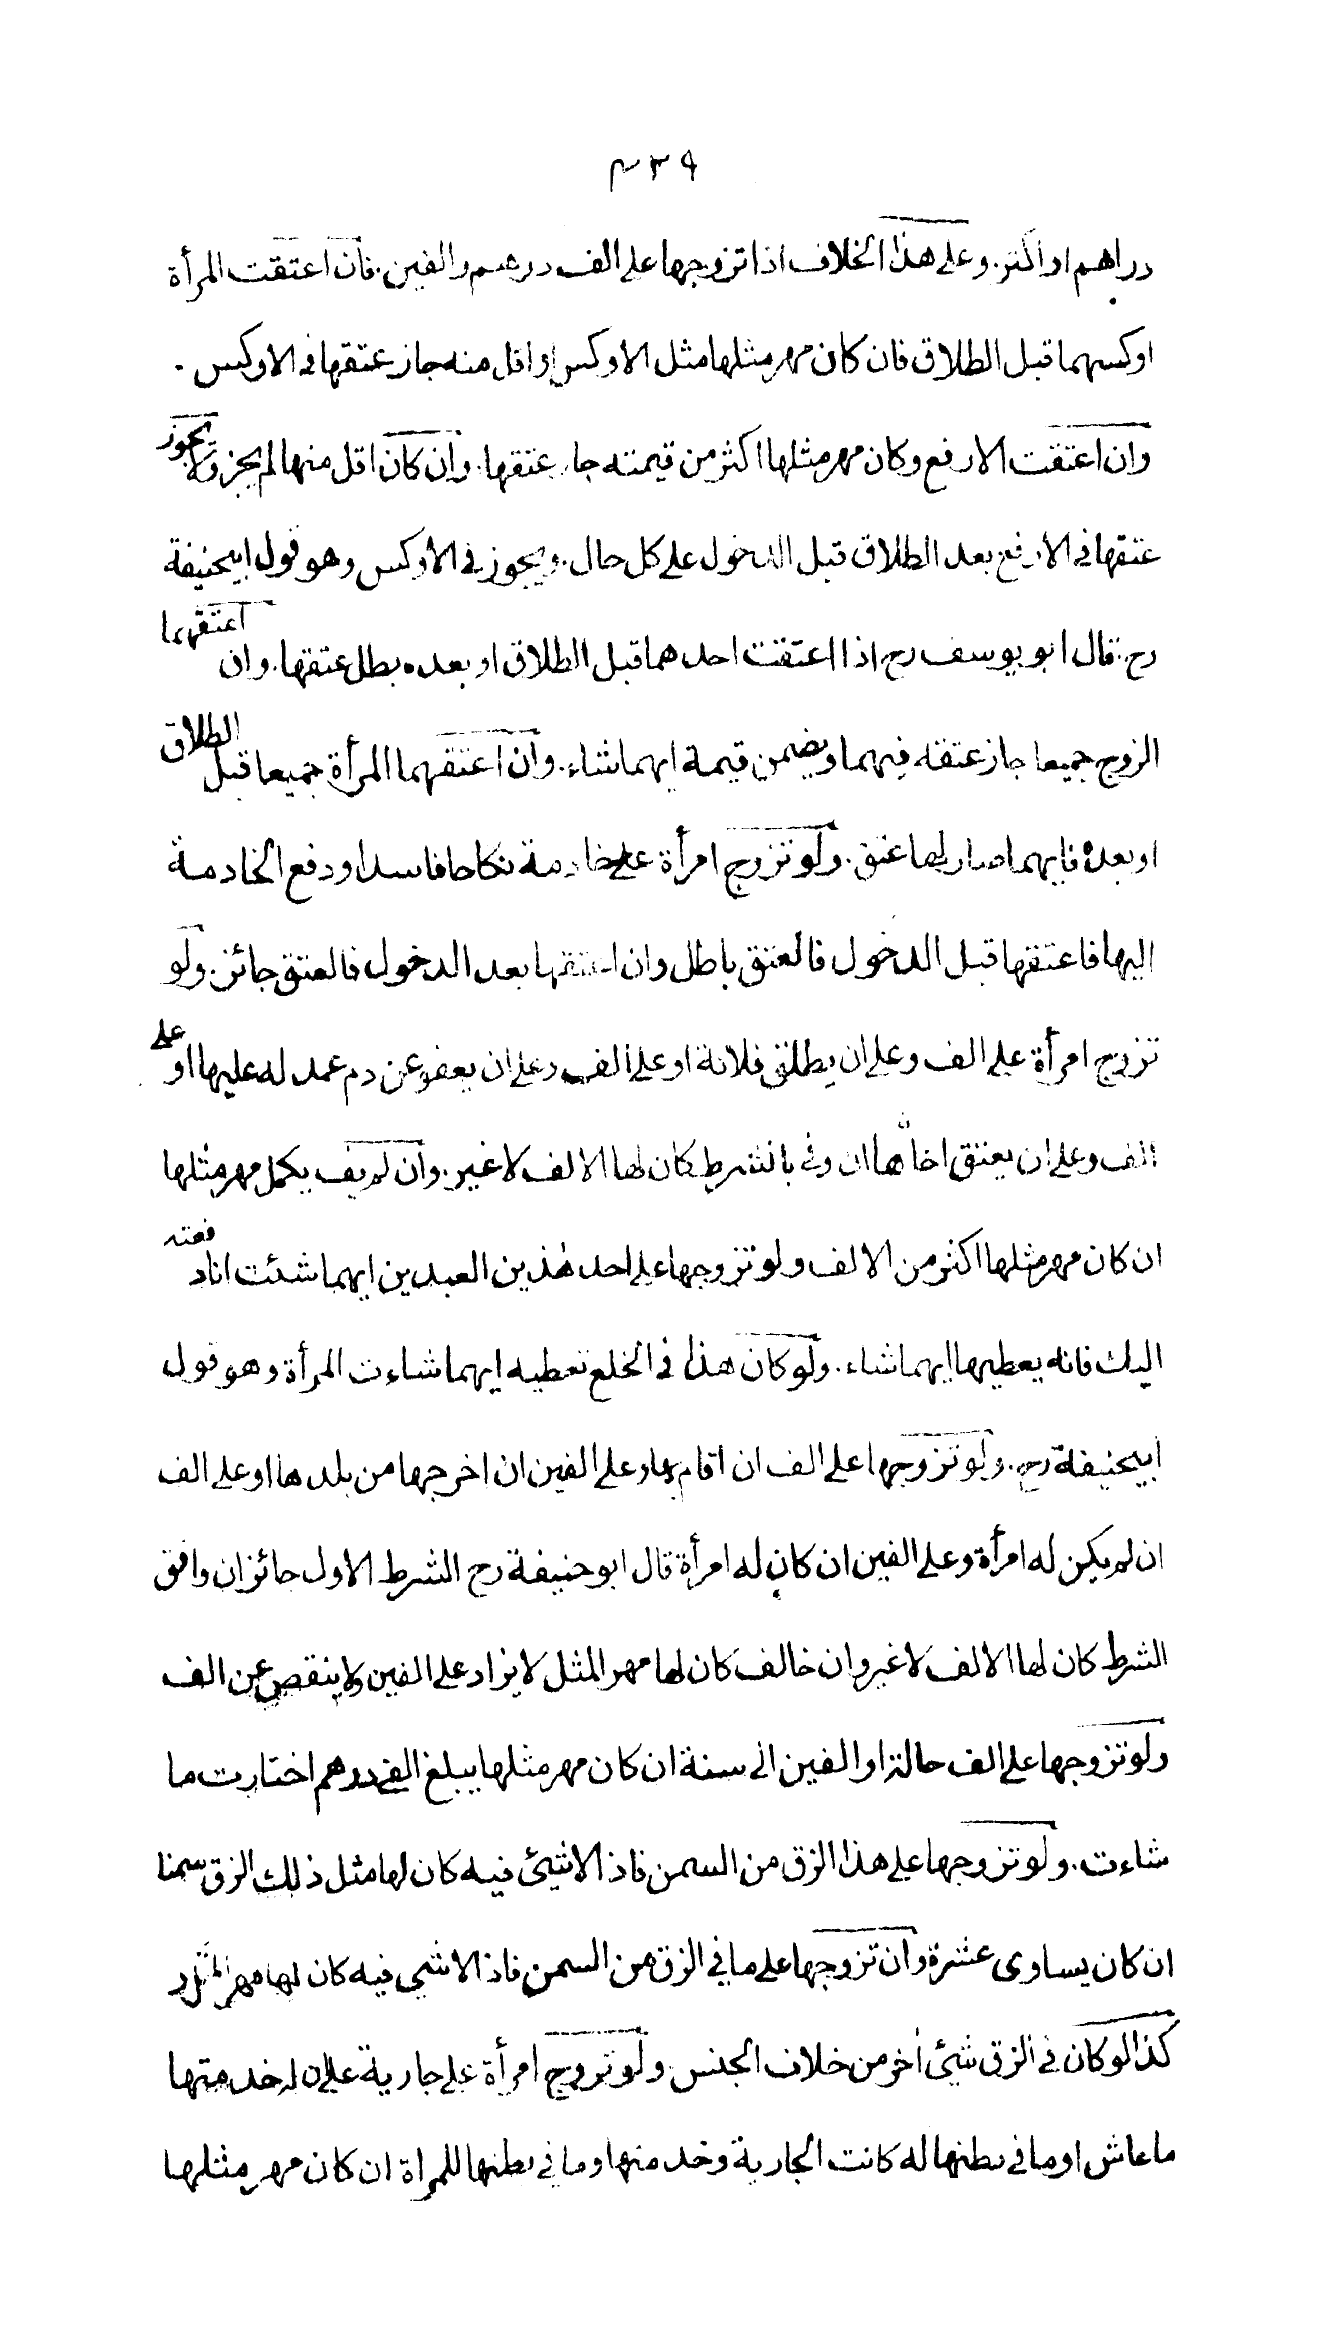 ٤٣٩
دراهم او اكثر. وعلى هذا الخلاف اذا تزوجها على الف درهم والفين. فان اعتقت المرأة
اوكسهما قبل الطلاق فان كان مهر مثلها مثل الاوكس او اقل منه جاز عتقها فى الاوكس.
وان اعتقت الارفع وكان مهر مثلها اكثر من قيمته جاز عتقها. وان كان اقل منها لم يجز ولا يجوز
عتقها فى الارفع بعد الطلاق قبل الدخول على كل حال. ويجوز فى الاوكس وهو قول ابيحنيفة
رح. قال ابو يوسف رح اذا اعتقت احدهما قبل الطلاق او بعده بطل عتقها. وان اعتقهما
الزوج جميعا جاز عتقه فيهما ويضمن قيمة ايهما شاء. وان اعتقهما المرأة جميعا قبل الطلاق
او بعده فايهما صار لها عتق. ولو تزوج امرأة على خادمة نكاحا فاسدا ودفع الخادمة
اليها فاعتقها قبل الدخول فالعتق باطل وان اعتقها بعد الدخول فالعتق جائز. ولو
تزوج امرأة على الف وعلى ان يطلق فلانة او على الف وعلى ان يعفو عن دم عمد له عليها او على
الف وعلى ان يعتق اخاها ان وفى بالشرط كان لها الالف لا غير. وان لم يف يكمل مهر مثلها
ان كان مهر مثلها اكثر من الالف ولو تزوجها على احد هذين العبدين ايهما شئت انا دفعته
اليك فانه يعطيها ايهما شاء. ولو كان هذا فى الخلع تعطيه ايهما شاءت المرأة وهو قول
ابيحنيفة رح. ولو تزوجها على الف ان اقام بها وعلى الفين ان اخرجها من بلدها او على الف
ان لم يكن له امرأة وعلى الفين ان كان له امرأة قال ابو حنيفة رح الشرط الاول جائز ان وافق
الشرط كان لها الالف لا غير وان خالف كان لها مهر المثل لا يزاد على الفين ولا ينقص عن الف
ولو تزوجها على الف حالة او الفين الى سنة ان كان مهر مثلها يبلغ الفى درهم اختارت ما
شاءت. ولو تزوجها على هذا الزق من السمن فاذ الا شيئ فيه كان لها مثل ذلك الزق سمنا
ان كان يساوى عشرة وان تزوجها على ما في الزق من السمن فاذ الا شيى فيه كان لها مهر المثل و
كذا لو كان فى الزق شيئ أخر من خلاف الجنس. ولو تزوج امرأة على جارية على ان له خدمتها
ما عاش او ما في بطنها له كانت الجارية وخدمتها وما في بطنها للمرأة ان كان مهر مثلها